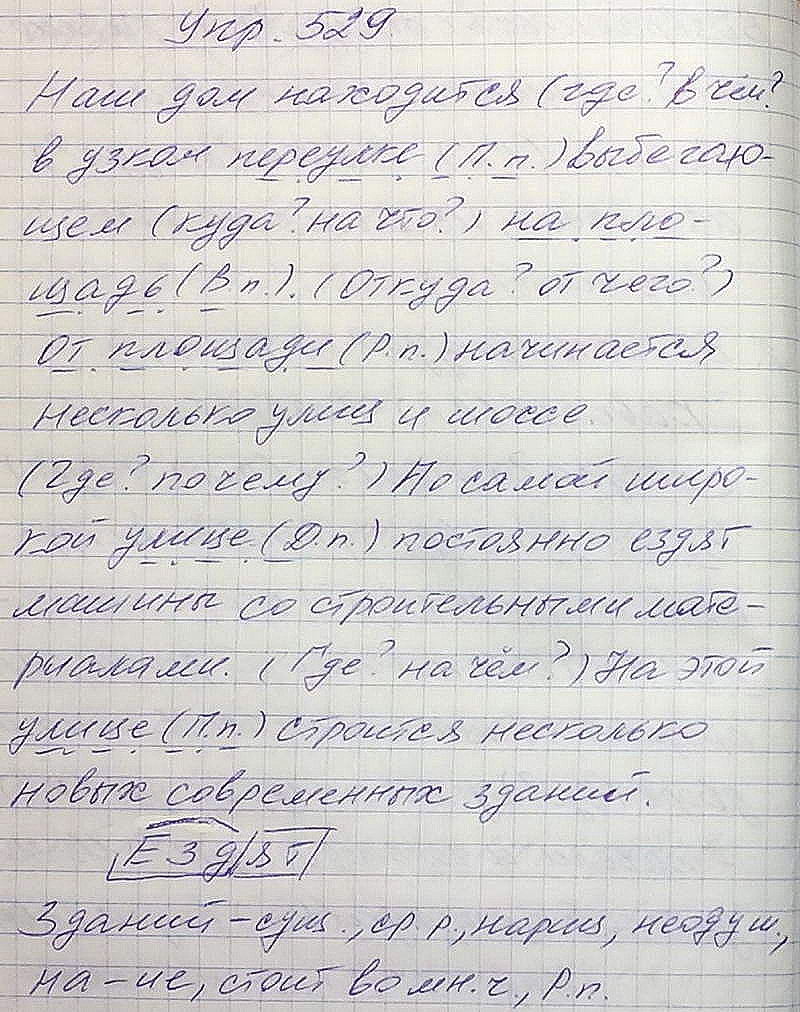 Упр. 529.
Наш дом находится (где? В чём?
в узком переулке (П.п.) выбегаю-
щем (куда? на что?) на пло-
щадь (В п.). (Откуда? от чего?)
От площади (Р.п.) начинается
несколько улиц и шоссе.
(Где? по чему?) По самой широ-
кой улице (Д.п.) постоянно ездят
машины со строительными мате-
риалами. (Где? на чём?) На этой
улице (П.п.) строится несколько
новых современных зданий.
Езд/ят
Зданий – сущ., ср.р., нариц, неодуш.,
на -ие, стоит во мн.ч., Р.п.